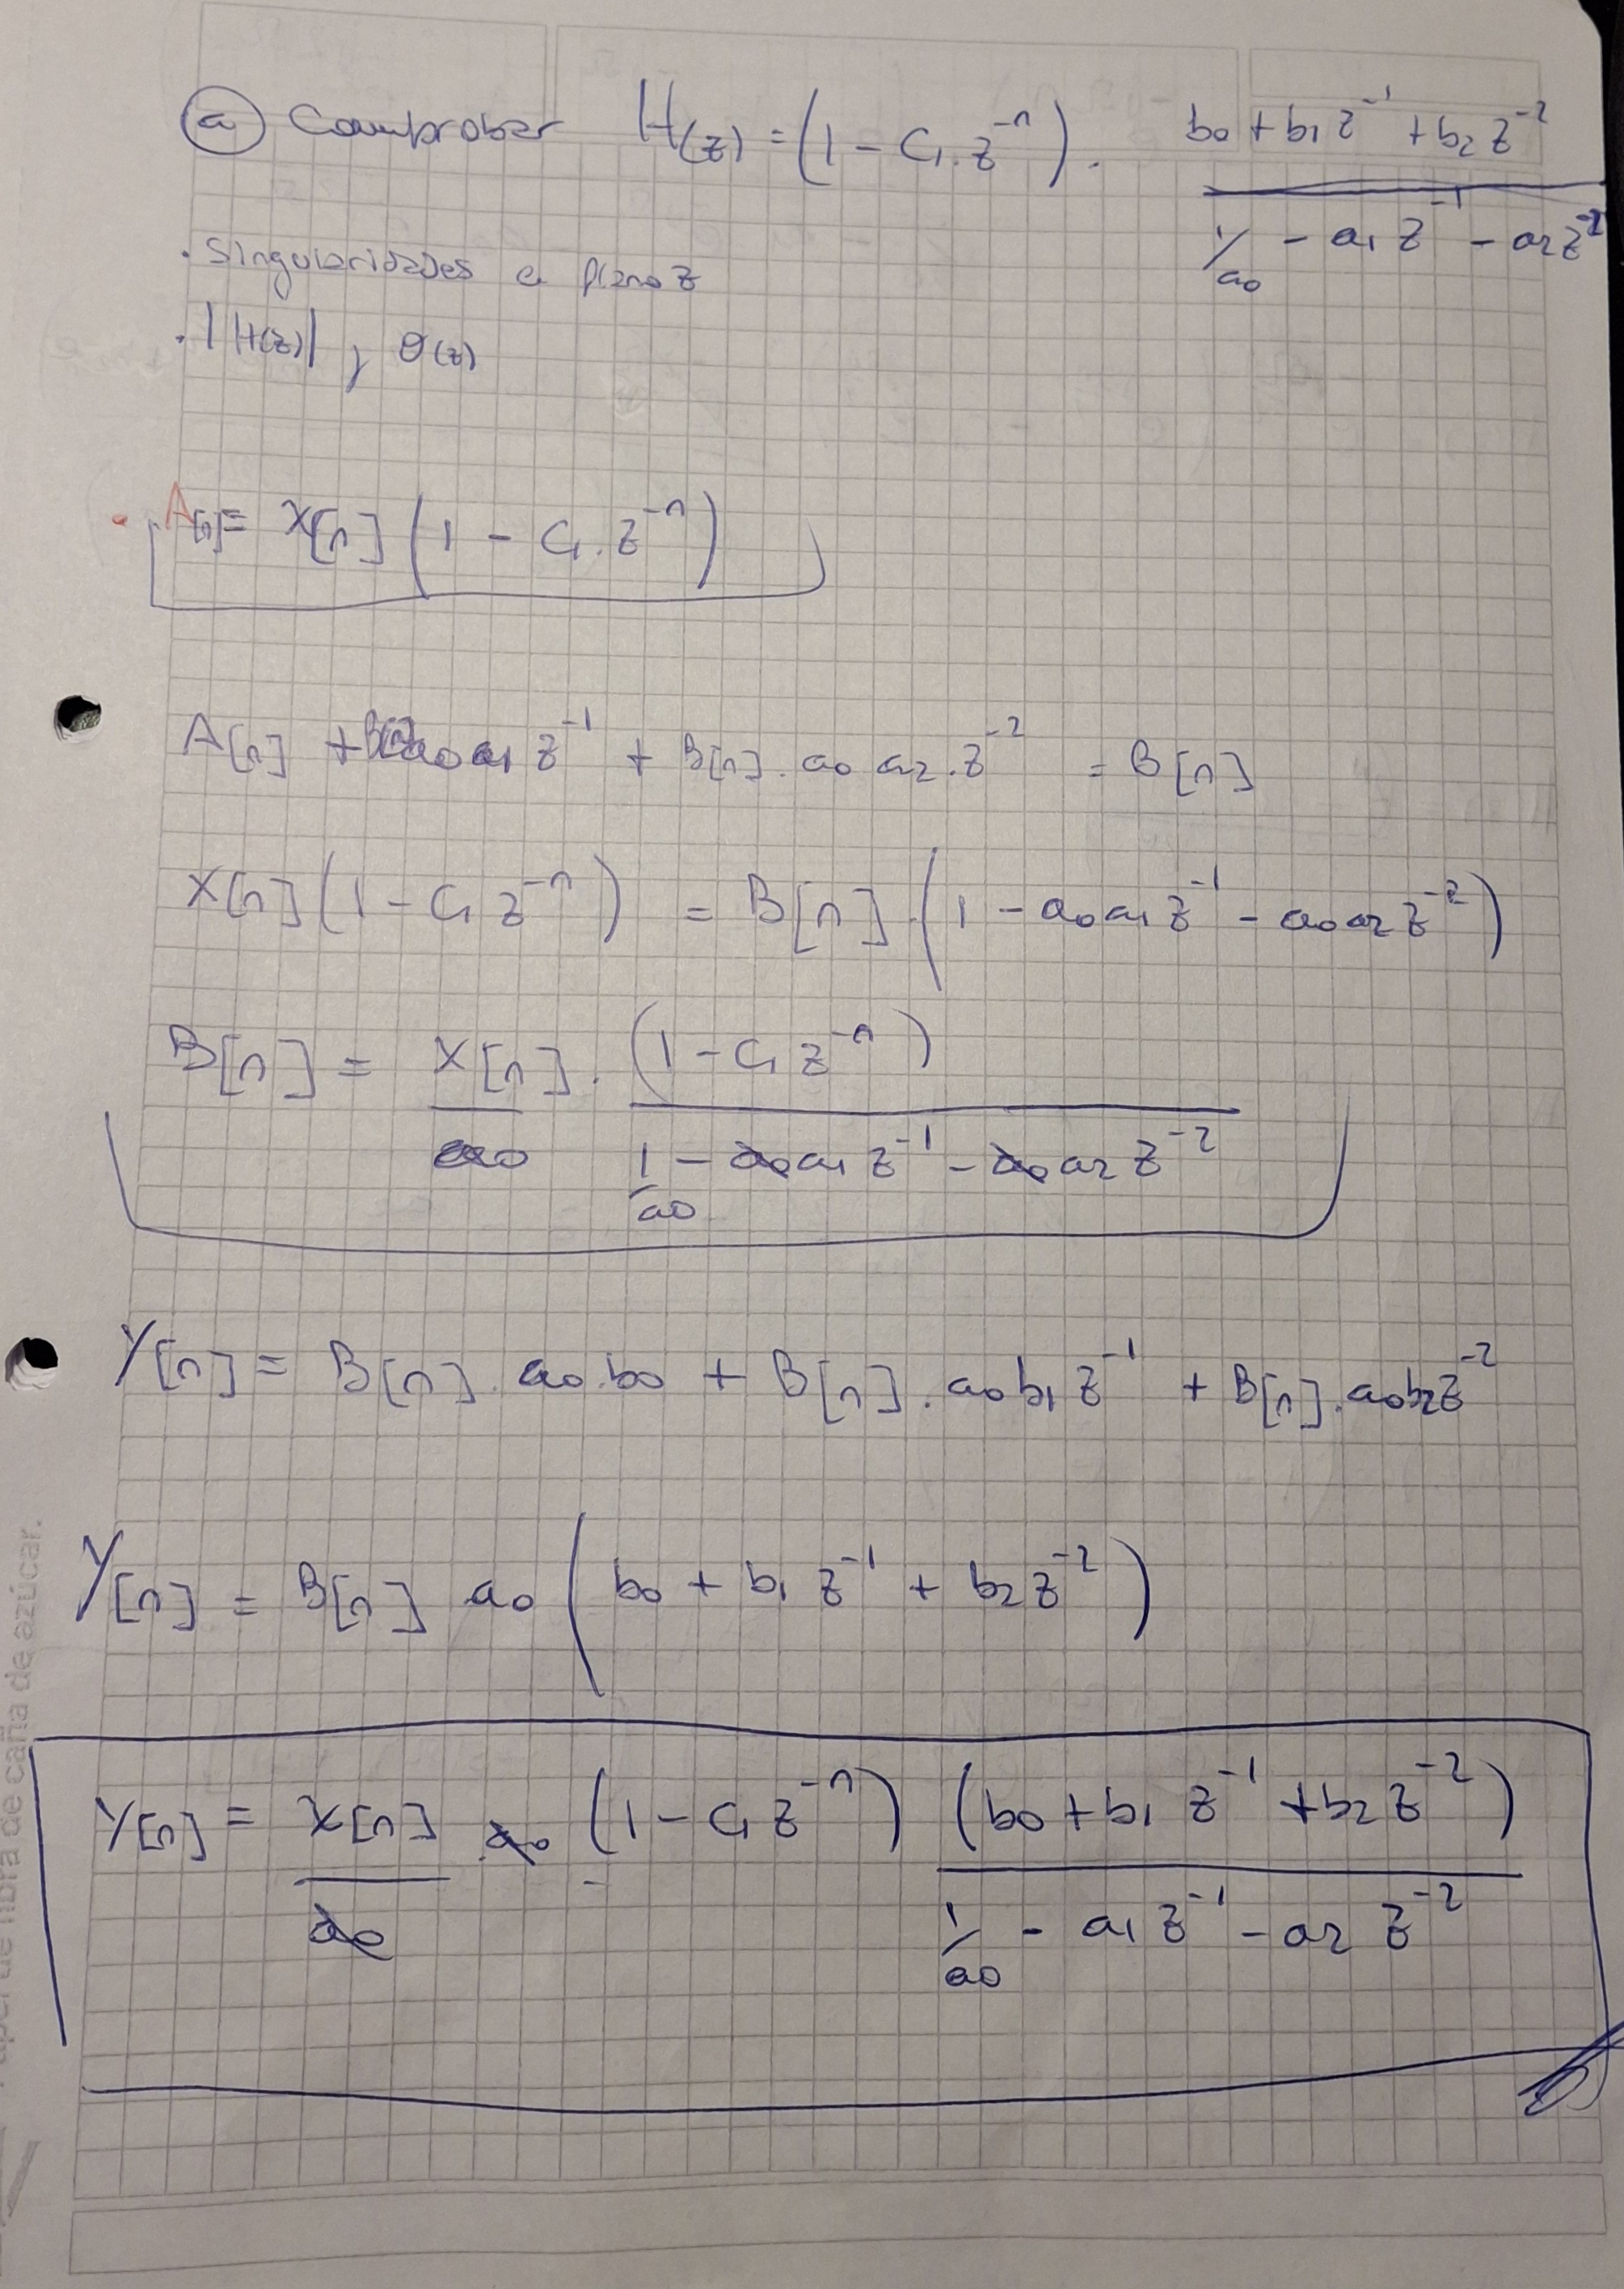 (a) Comprobar H(z) = (1 - C₁ . z⁻ⁿ) . (b₀ + b₁ z⁻¹ + b₂ z⁻²) / (1/a₀ - a₁ z⁻¹ - a₂ z⁻²)
. Singularidades e plano z
. |H(z)| y θ(z)
. A[n] = X[n] (1 - C₁ . z⁻ⁿ)
A[n] + B[n] a₀ a₁ z⁻¹ + B[n] . a₀ a₂ . z⁻² = B[n]
X[n] (1 - C₁ z⁻ⁿ) = B[n] . (1 - a₀ a₁ z⁻¹ - a₀ a₂ z⁻²)
B[n] = X[n]/a₀ . (1 - C₁ z⁻ⁿ) / (1/a₀ - a₀ a₁ z⁻¹ - a₀ a₂ z⁻²)
Y[n] = B[n] . a₀ . b₀ + B[n] . a₀ b₁ z⁻¹ + B[n] . a₀ b₂ z⁻²
Y[n] = B[n] a₀ (b₀ + b₁ z⁻¹ + b₂ z⁻²)
Y[n] = X[n]/a₀ . a₀ (1 - C₁ z⁻ⁿ) (b₀ + b₁ z⁻¹ + b₂ z⁻²) / (1/a₀ - a₁ z⁻¹ - a₂ z⁻²)
de fibra de caña de azúcar.